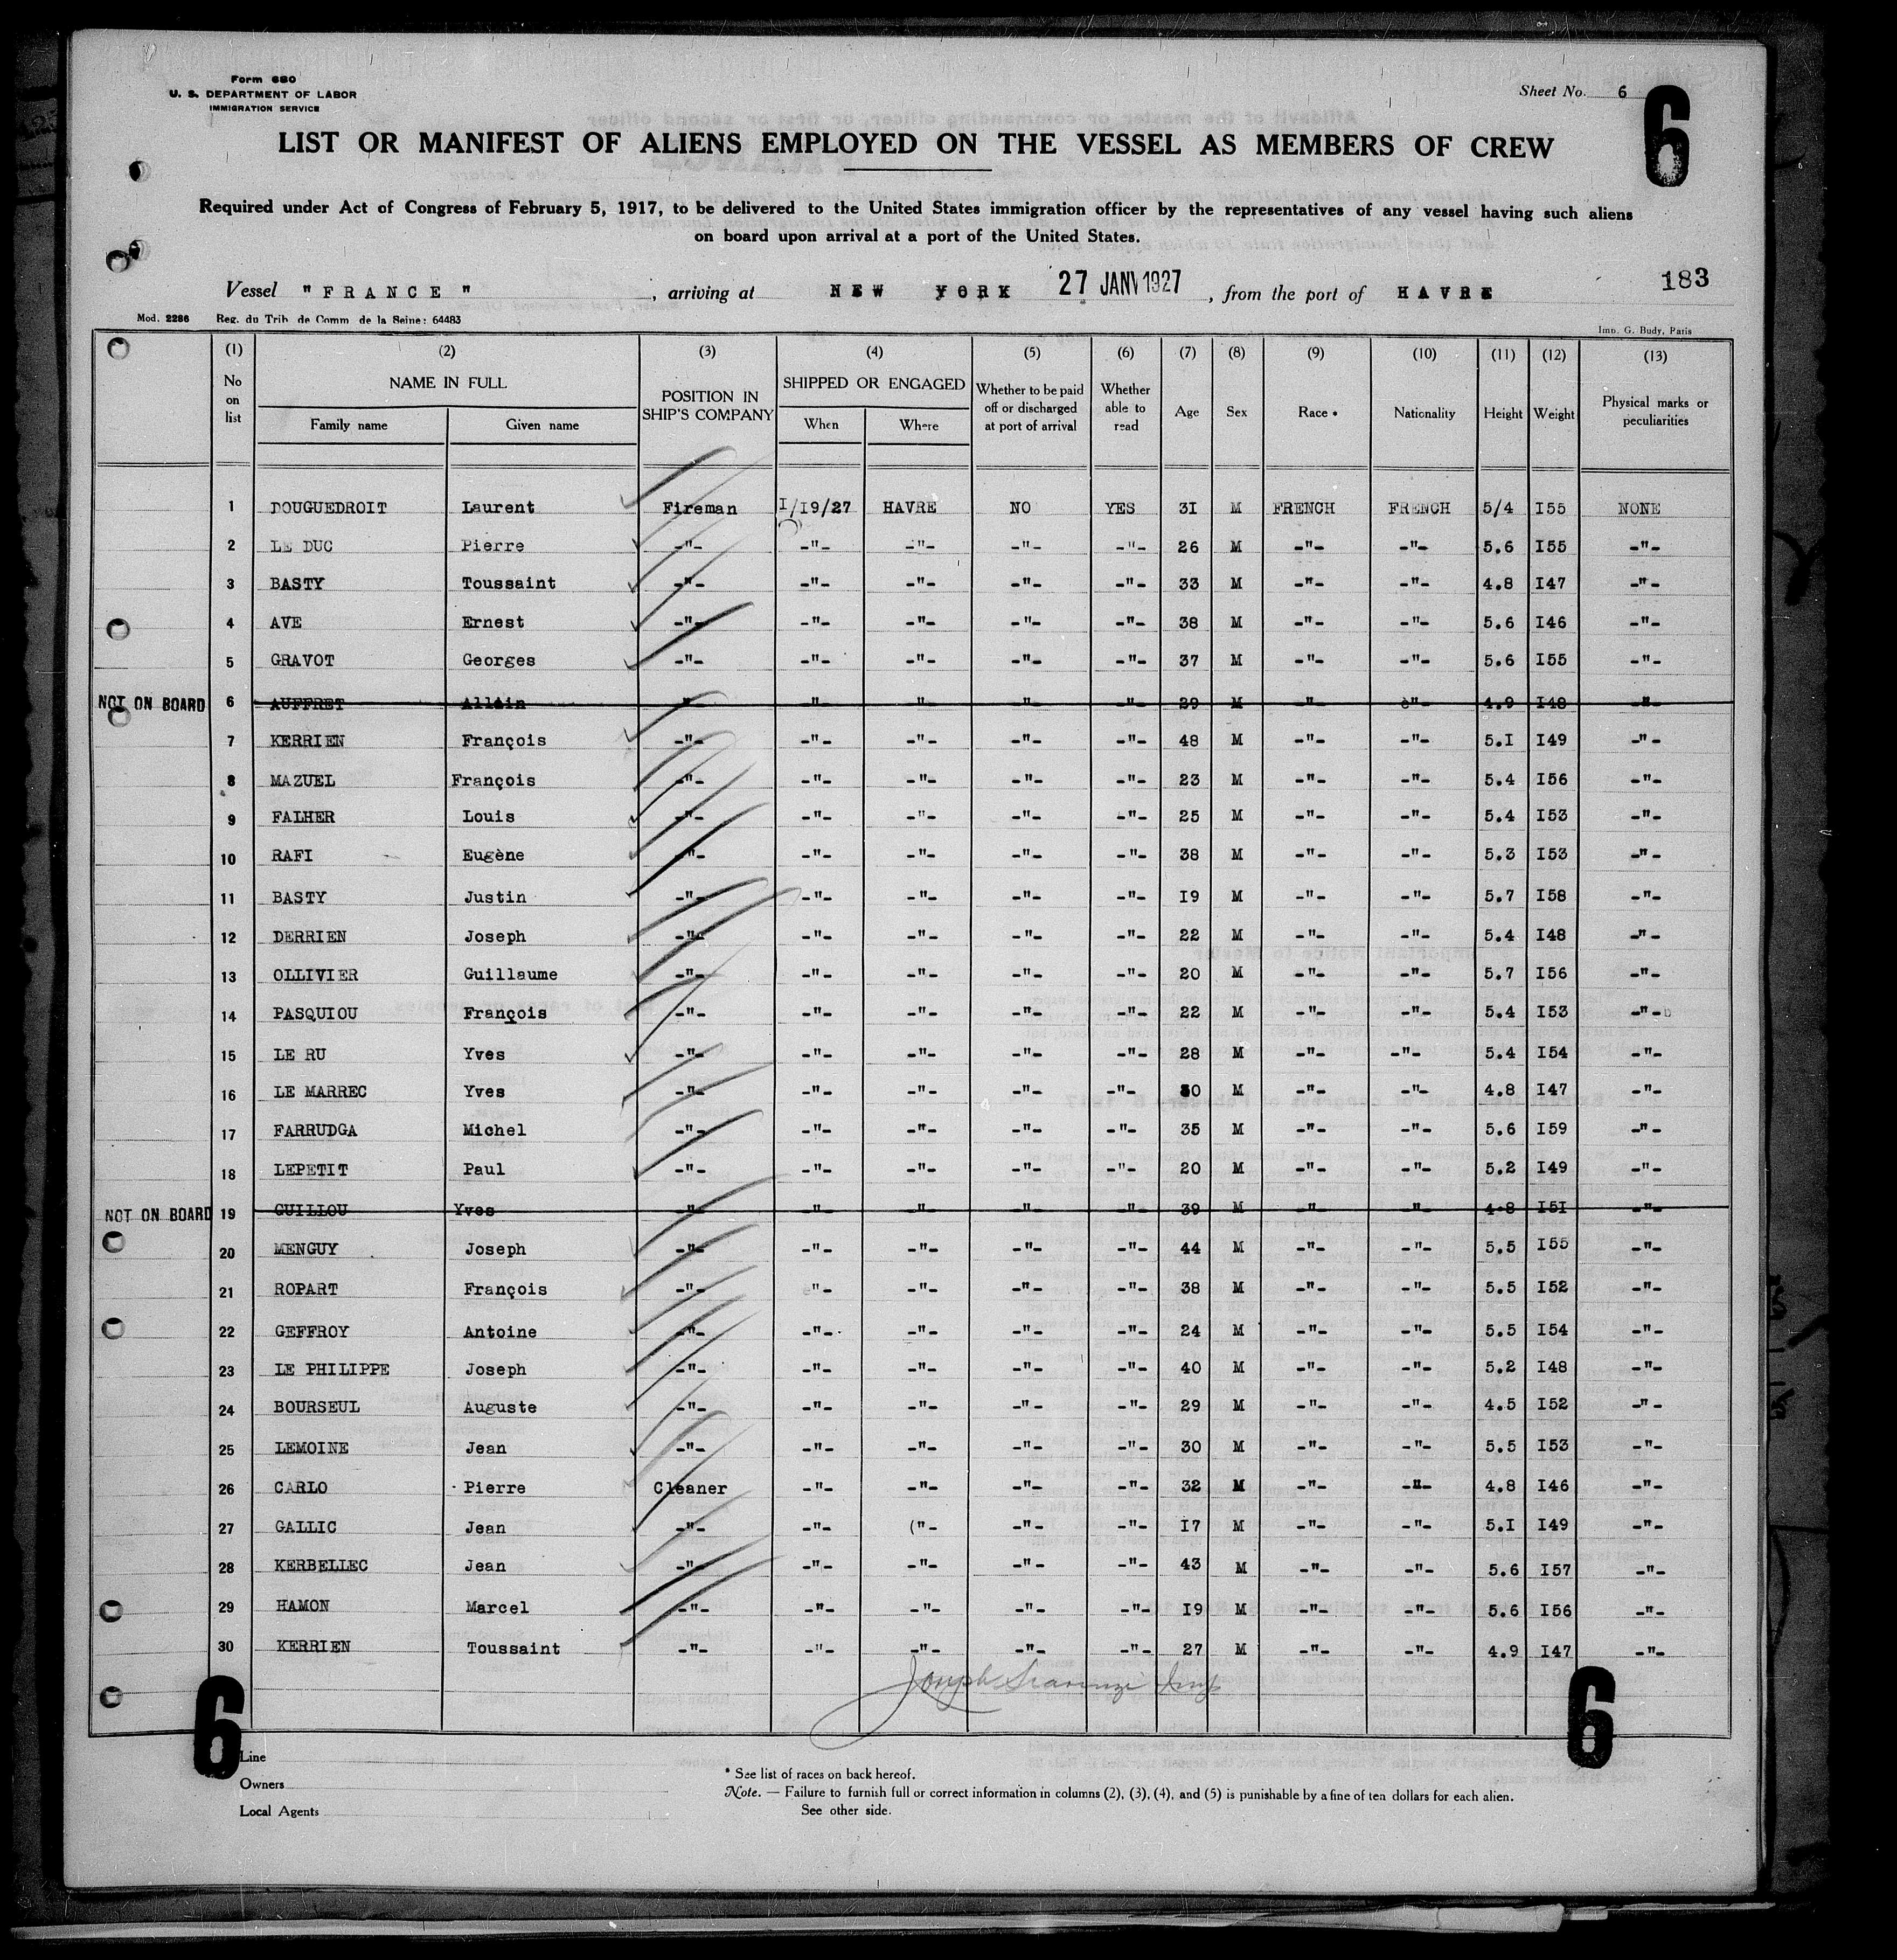 Form 680
U. S. DEPARTMENT OF LABOR
IMMIGRATION SERVICE
Sheet No. 6
6
LIST OR MANIFEST OF ALIENS EMPLOYED ON THE VESSEL AS MEMBERS OF CREW
Required under Act of Congress of February 5, 1917, to be delivered to the United States immigration officer by the representatives of any vessel having such aliens
on board upon arrival at a port of the United States.
183
Vessel "FRANCE" , arriving at NEW YORK 27 JANV 1927 , from the port of HAVRE
Mod. 2286 Reg. du Trib. de Comm. de la Seine: 64483 Imp. G. Budy, Paris
(1) (2) (3) (4) (5) (6) (7) (8) (9) (10) (11) (12) (13)
No on list NAME IN FULL POSITION IN SHIP'S COMPANY SHIPPED OR ENGAGED Whether to be paid off or discharged at port of arrival Whether able to read Age Sex Race * Nationality Height Weight Physical marks or peculiarities
Family name Given name When Where
1 DOUGUEDROIT Laurent Fireman I/19/27 HAVRE NO YES 3I M FRENCH FRENCH 5/4 I55 NONE
2 LE DUC Pierre -"- -"- -"- -"- -"- 26 M -"- -"- 5.6 I55 -"-
3 BASTY Toussaint -"- -"- -"- -"- -"- 33 M -"- -"- 4.8 I47 -"-
4 AVE Ernest -"- -"- -"- -"- -"- 38 M -"- -"- 5.6 I46 -"-
5 GRAVOT Georges -"- -"- -"- -"- -"- 37 M -"- -"- 5.6 I55 -"-
NOT ON BOARD 6 AUFFRET Allain -"- -"- -"- -"- -"- 29 M -"- -"- 4.9 I48 -"-
7 KERRIEN François -"- -"- -"- -"- -"- 48 M -"- -"- 5.I I49 -"-
8 MAZUEL François -"- -"- -"- -"- -"- 23 M -"- -"- 5.4 I56 -"-
9 FALHER Louis -"- -"- -"- -"- -"- 25 M -"- -"- 5.4 I53 -"-
10 RAFI Eugène -"- -"- -"- -"- -"- 38 M -"- -"- 5.3 I53 -"-
11 BASTY Justin -"- -"- -"- -"- -"- I9 M -"- -"- 5.7 I58 -"-
12 DERRIEN Joseph -"- -"- -"- -"- -"- 22 M -"- -"- 5.4 I48 -"-
13 OLLIVIER Guillaume -"- -"- -"- -"- -"- 20 M -"- -"- 5.7 I56 -"-
14 PASQUIOU François -"- -"- -"- -"- -"- 22 M -"- -"- 5.4 I53 -"-
15 LE RU Yves -"- -"- -"- -"- -"- 28 M -"- -"- 5.4 I54 -"-
16 LE MARREC Yves -"- -"- -"- -"- -"- 30 M -"- -"- 4.8 I47 -"-
17 FARRUDGA Michel -"- -"- -"- -"- -"- 35 M -"- -"- 5.6 I59 -"-
18 LEPETIT Paul -"- -"- -"- -"- -"- 20 M -"- -"- 5.2 I49 -"-
NOT ON BOARD 19 GUILLOU Yves -"- -"- -"- -"- -"- 39 M -"- -"- 4.8 I5I -"-
20 MENGUY Joseph -"- -"- -"- -"- -"- 44 M -"- -"- 5.5 I55 -"-
21 ROPART François -"- -"- -"- -"- -"- 38 M -"- -"- 5.5 I52 -"-
22 GEFFROY Antoine -"- -"- -"- -"- -"- 24 M -"- -"- 5.5 I54 -"-
23 LE PHILIPPE Joseph -"- -"- -"- -"- -"- 40 M -"- -"- 5.2 I48 -"-
24 BOURSEUL Auguste -"- -"- -"- -"- -"- 29 M -"- -"- 4.5 I52 -"-
25 LEMOINE Jean -"- -"- -"- -"- -"- 30 M -"- -"- 5.5 I53 -"-
26 CARLO Pierre Cleaner -"- -"- -"- -"- 32 M -"- -"- 4.8 I46 -"-
27 GALLIC Jean -"- -"- ("- -"- -"- I7 M -"- -"- 5.I I49 -"-
28 KERBELLEC Jean -"- -"- -"- -"- -"- 43 M -"- -"- 5.6 I57 -"-
29 HAMON Marcel -"- -"- -"- -"- -"- I9 M -"- -"- 5.6 I56 -"-
30 KERRIEN Toussaint -"- -"- -"- -"- -"- 27 M -"- -"- 4.9 I47 -"-
Joseph
6 6
Line
Owners
Local Agents
* See list of races on back hereof.
Note. — Failure to furnish full or correct information in columns (2), (3), (4), and (5) is punishable by a fine of ten dollars for each alien.
See other side.